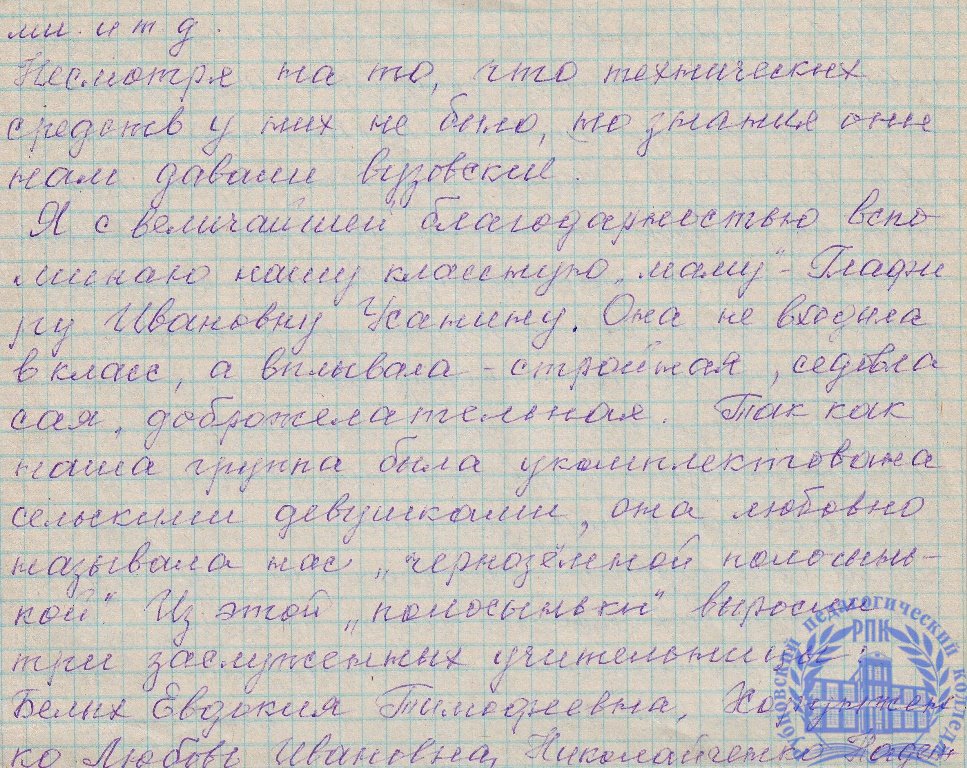 ми. и т д.
Несмотря на то, что технических
средств у них не было, но знания они
нам давали вузовские.
Я с величайшей благодарностью вспо-
минаю нашу классную „маму" - Глафи
ру Ивановну Усанину. Она не входила
в класс, а вплывала - стройная, седовла
сая, доброжелательная. Так как
наша группа была укомплектована
сельскими девушками, она любовно
называла нас „чернозёмной полосынь-
кой". Из этой „полосыньки" выросли
три заслуженных учительницы:
Белых Евдокия Тимофеевна,
ко Любовь Ивановна, Николайченко Надеж
педагогический колледж
РПК